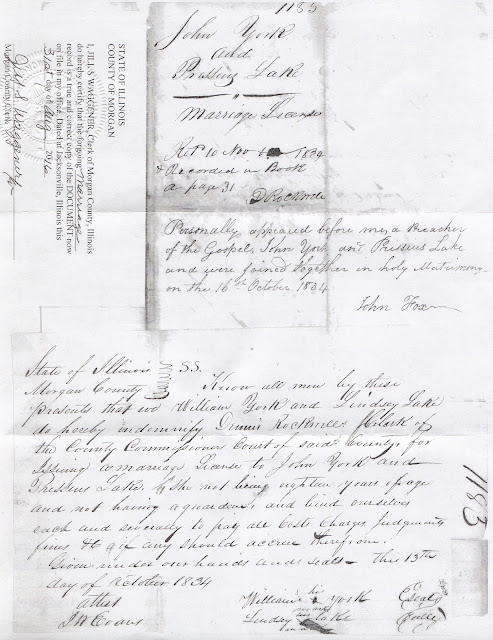 1183
John York
and
Pressus Lake
Marriage License
Ret 10 Nov 1834
& Recorded in Book
a page 31
D Rockwell
Personally appeared before me, a Preacher
of the Gospel, John York and Pressus Lake
and were joined together in holy Matrimony
on the 16th October 1834
John Fox
STATE OF ILLINOIS
COUNTY OF MORGAN
I, JILL S WAGGENER, Clerk of Morgan County, Illinois
do hereby certify that the forgoing Marriage
record is a true and correct copy of the DOCUMENT now
on file in my office. Dated at Jacksonville, Illinois this
31st day of Aug 2016
Jill S. Waggener
Morgan County Clerk
State of Illinois S.S.
Morgan County Know all men by these
presents that we William York and Lindsay Lake
do hereby indemnify Dennis Rockwell Clerk of
the County Commissioners Court of said County, for
issuing a marriage License to John York and
Pressus Lake, she not being eighteen years of age
and not having a guardian, and bind ourselves
each and severally to pay all Costs Charges Judgments
fines &c if any should accrue therefrom.
Given under our hands and seals this 13th
day of October 1834
attest William his York (Seal)
J W Evans Lindsay Lake (Seal)
mark
1183